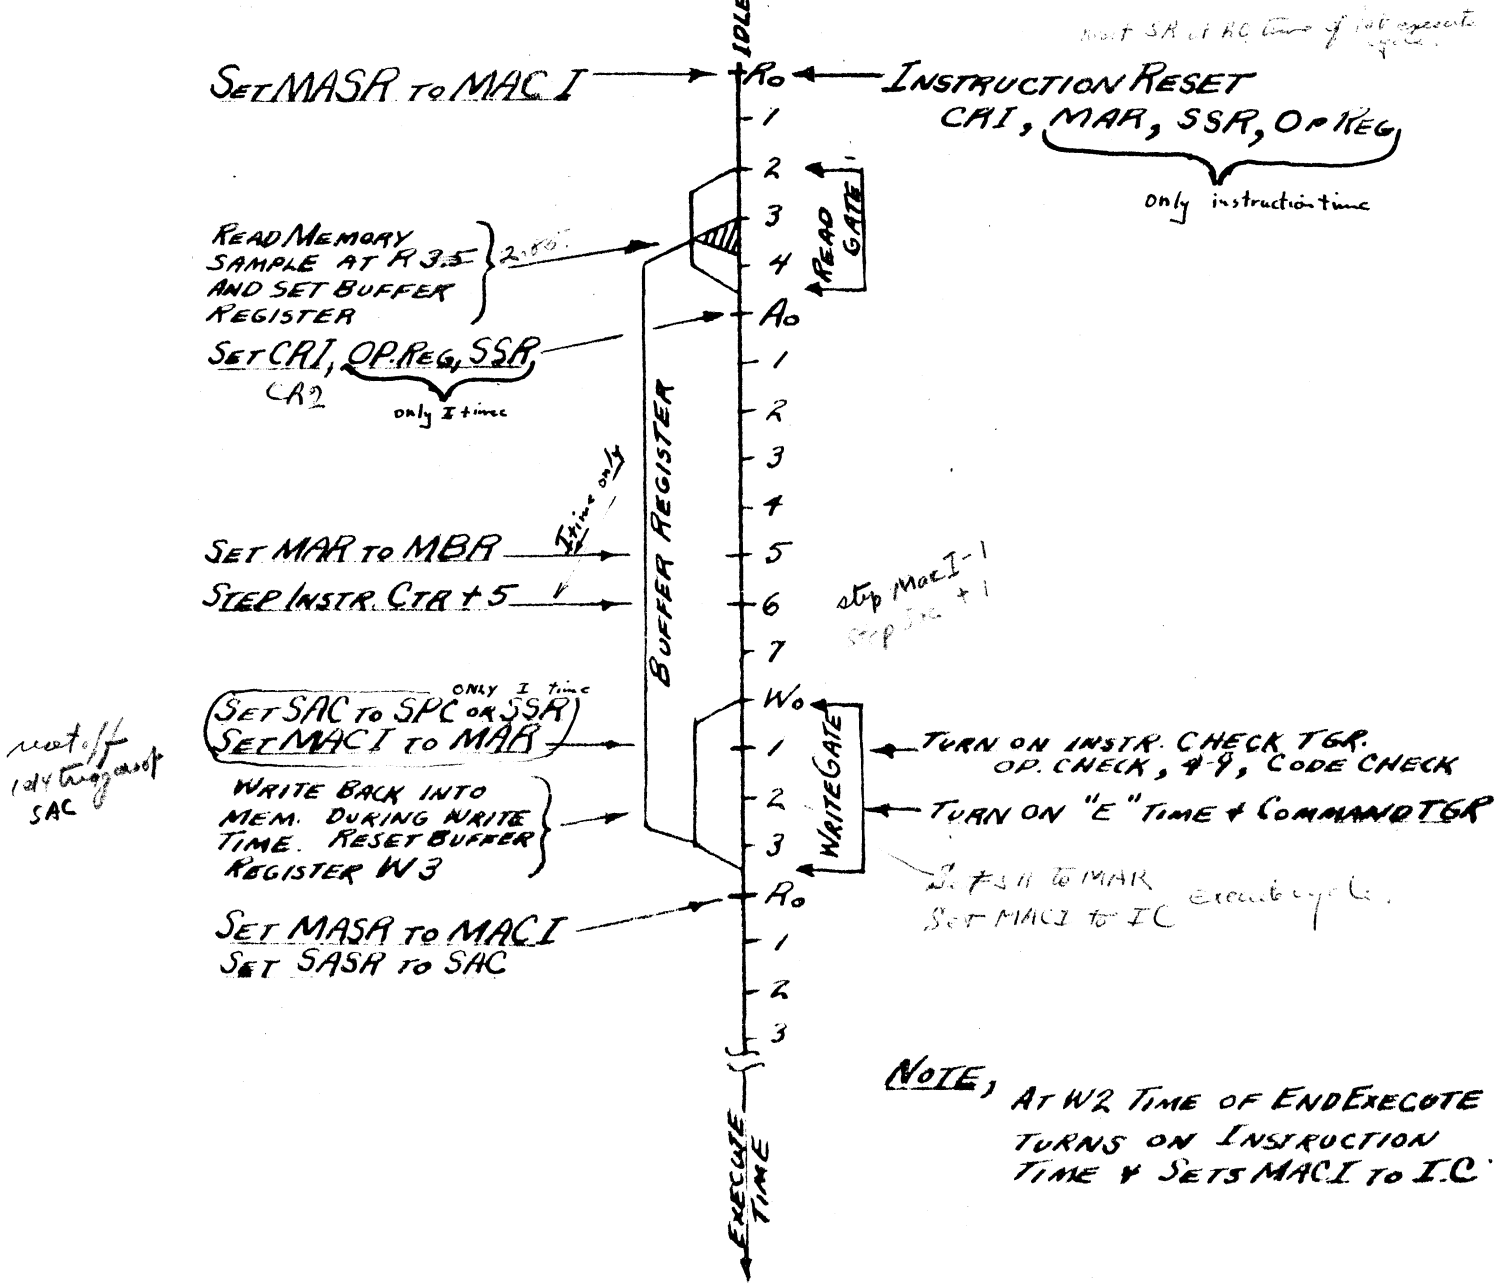 IDLE
SET MASR TO MAC I
R0
INSTRUCTION RESET
CRI, MAR, SSR, OP REG,
only instruction time
1
2
3
4
READ GATE
READ MEMORY
SAMPLE AT R 3.5
2.85
AND SET BUFFER
REGISTER
A0
SET CRI, OP. REG, SSR,
CR2
only I time
1
2
3
4
5
6
7
BUFFER REGISTER
I time only
SET MAR TO MBR
STEP INSTR. CTR + 5
step Mac I - 1
step + 1
ONLY I time
SET SAC TO SPC OR SSR
SET MAC I TO MAR
W0
1
2
3
WRITE GATE
TURN ON INSTR. CHECK TGR.
OP. CHECK, 4-9, CODE CHECK
TURN ON "E" TIME & COMMAND TGR
SAC
WRITE BACK INTO
MEM. DURING WRITE
TIME. RESET BUFFER
REGISTER W3
to MAR
SET MAC I to IC
execute cycle.
R0
SET MASR TO MAC I
SET SASR TO SAC
1
2
3
EXECUTE TIME
NOTE,
AT W2 TIME OF END EXECUTE
TURNS ON INSTRUCTION
TIME & SETS MAC I TO I.C.